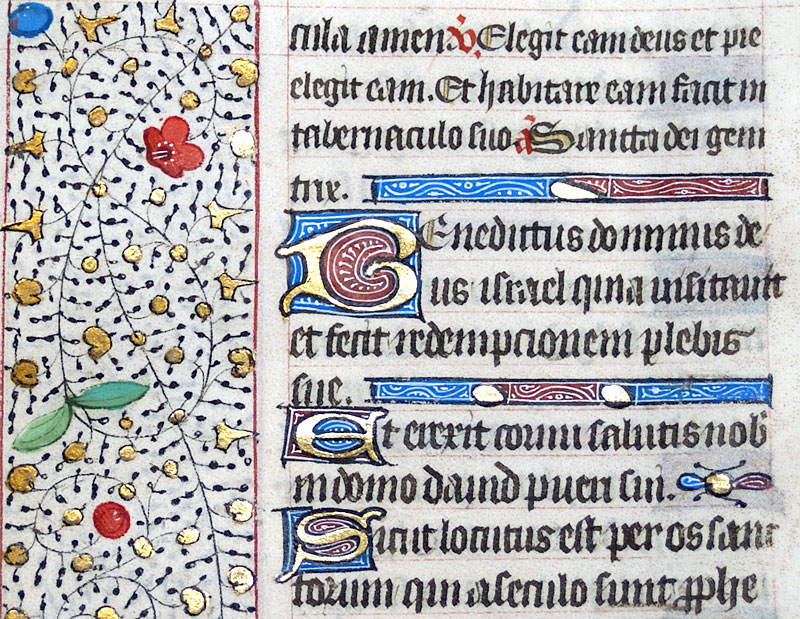 cula amen. v. Elegit eam deus et pre
elegit eam. Et habitare eam facit in
tabernaculo suo. a. Sancta dei geni
trix.
Benedictus dominus de
us israel quia uisitauit
et fecit redempcionem plebis
sue.
Et erexit cornu salutis nob̅
in domo dauid pueri sui.
Sicut locutus est per os sanc
torum qui a seculo sunt ꝓphe